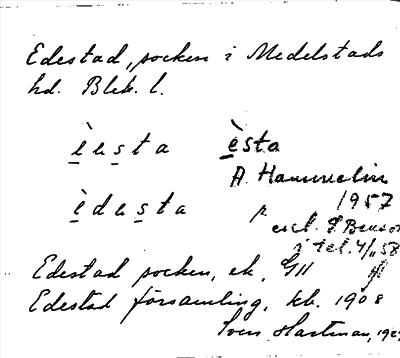 Edestad, socken i Medelstads
hd. Blek. l.
è e s t a èsta
A. Hammelin
1957
è d e s t a
enl.
i tel. 4/11 58
Edestad socken, ek. GH
Edestad församling, kb. 1908
Sven Hartman, 192